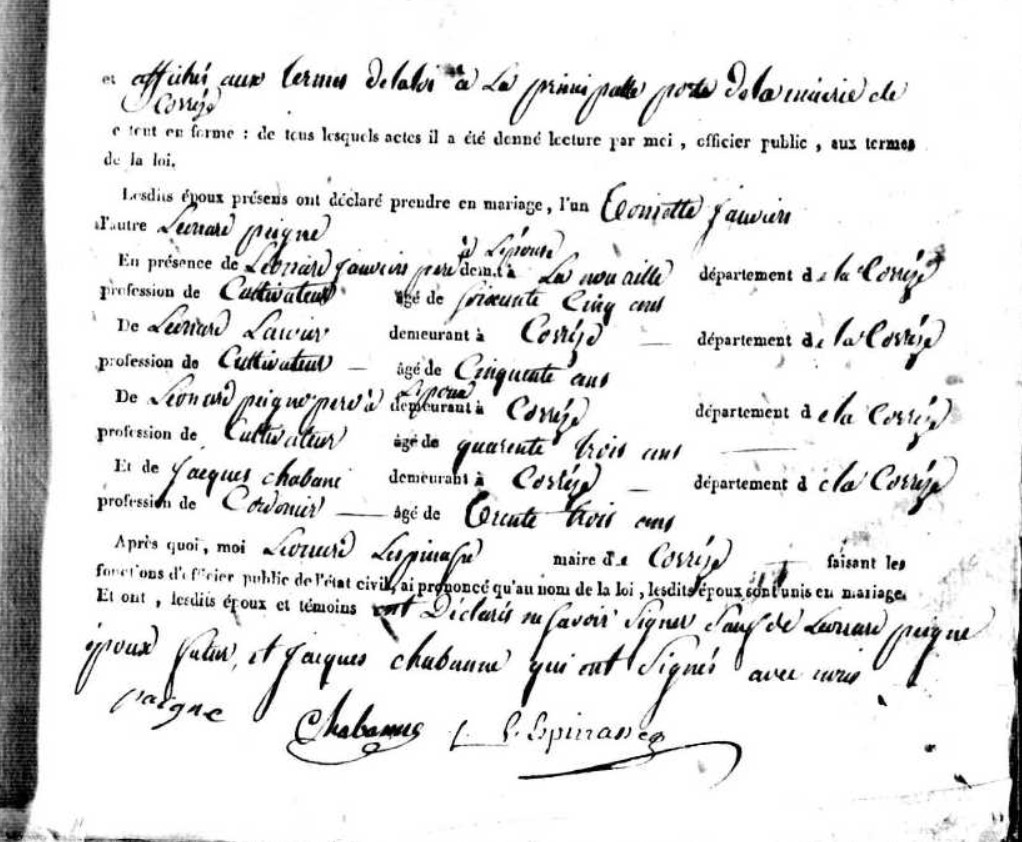 et affichés aux termes de la loi à la principalle porte de la mairie de
Corrèze
e tout en forme : de tous lesquels actes il a été donné lecture par moi, officier public, aux termes
de la loi.
Lesdits époux présens ont déclaré prendre en mariage, l'un Toinette
d'autre Leonard peigne
à Lépouse
En présence de Léonard pere dem.t à La nouaille département de la Corrèze
profession de Cultivateur âgé de soixente Cinq ans
De Léonard demeurant à Corrèze — département de la Corrèze
profession de Cultivateur — âgé de Cinquente ans
Lepoux
De Léonard peigne pere à demeurant à Corrèze département de la Corrèze
profession de Cultivateur âgé de quarente trois ans
Et de Jacques chabane demeurant à Corrèze — département de la Corrèze
profession de Cordonier — âgé de Trente trois ans
Après quoi, moi Léonard Lespinasse maire de Corrèze faisant les
fonctions d'officier public de l'état civil, ai prononcé qu'au nom de la loi, lesdits époux sont unis en mariage.
Et ont, lesdits époux et témoins ont Déclarés ne savoir signer sauf de Leonard peigne
époux futur, et Jacques chabanne qui ont signés avec nous
paigne Chabanne L. Lespinasse